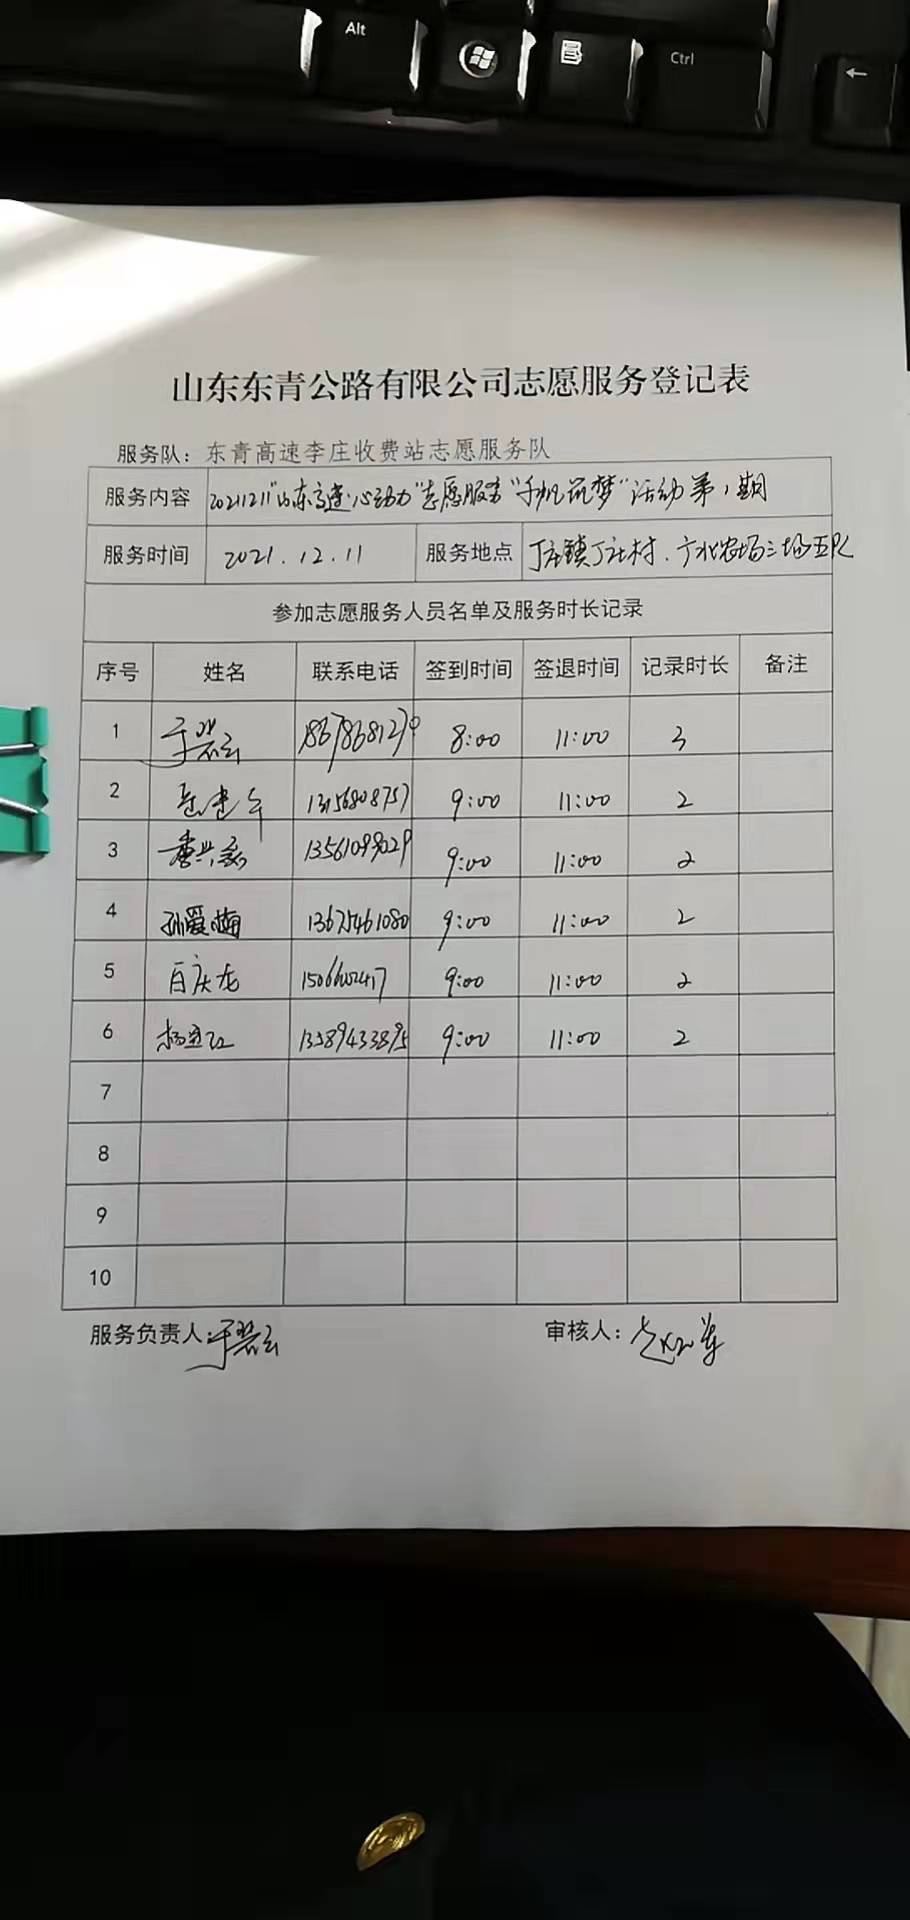 Alt
Ctrl
←
山东东青公路有限公司志愿服务登记表
服务队：东青高速李庄收费站志愿服务队
服务内容 20211211"山东高速·心动力"志愿服务"手机筑梦"活动第1期
服务时间 2021.12.11 服务地点 丁庄镇丁庄村.广北农场三场五队
参加志愿服务人员名单及服务时长记录
序号 姓名 联系电话 签到时间 签退时间 记录时长 备注
1 于碧云 8:00 11:00 3
2 9:00 11:00 2
3 13561099029 9:00 11:00 2
4 孙爱梅 13675461080 9:00 11:00 2
5 百庆龙 9:00 11:00 2
6 13589433895 9:00 11:00 2
7
8
9
10
服务负责人：于碧云 审核人：